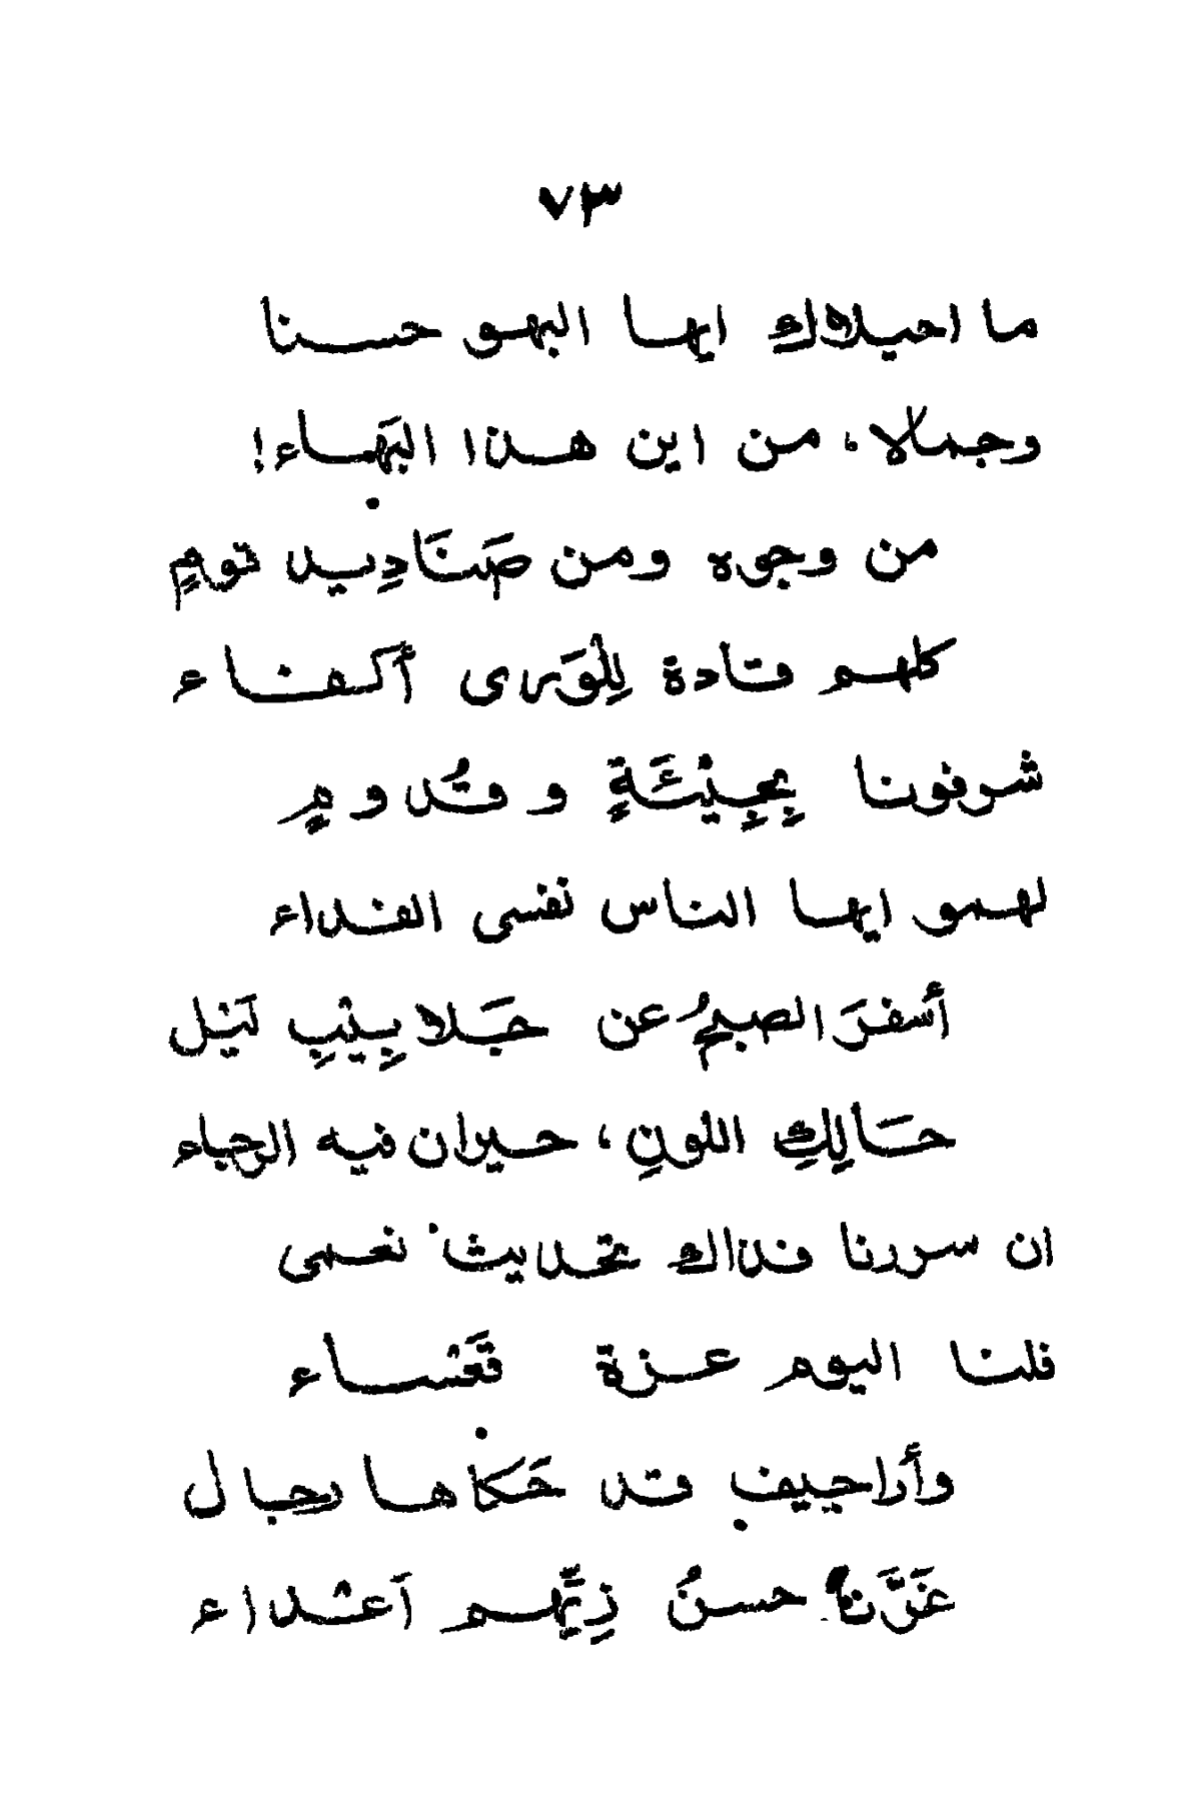 ٧٣
ما احيلاك ايها البهو حسنا
وجمالا، من اين هذا البَهاء!
من وجوه ومن صَنَادِيد قومٍ
كلهم قادة لِلْوَرى أكفاء
شرفونا بِجِيْئَةٍ وقُدومٍ
لهمو ايها الناس نفسى الفداء
أسفرَ الصبحُ عن جَلابِيْبِ لَيْل
حَالِكِ اللونِ، حيران فيه الرجاء
ان سررنا فذاك تحديث نعمى
فلنا اليوم عزة قَعْساء
وأراجيف قد حَكاها رجال
غَرَّنا حسنُ زِيِّهم آعْداء